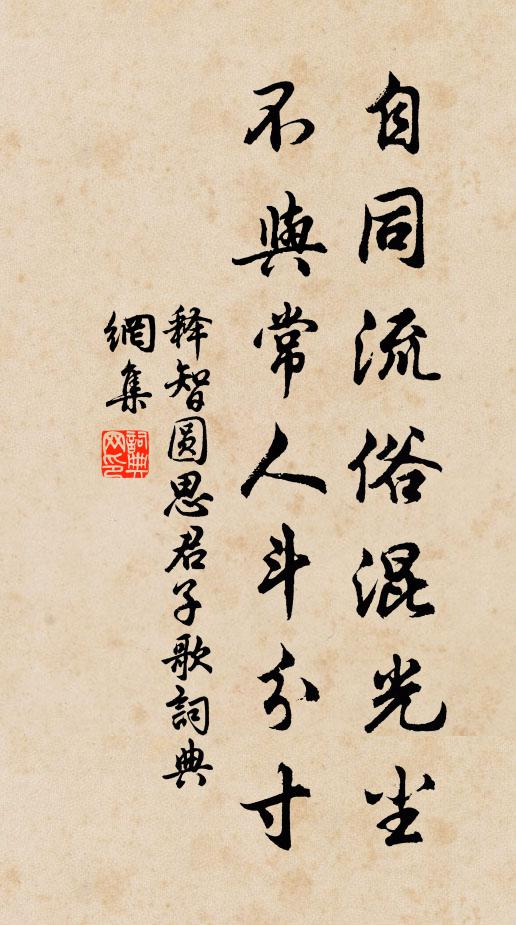 自同流俗混光尘
不與常人斗分寸
释智圆思君子歌詞典
網集
詞典网印